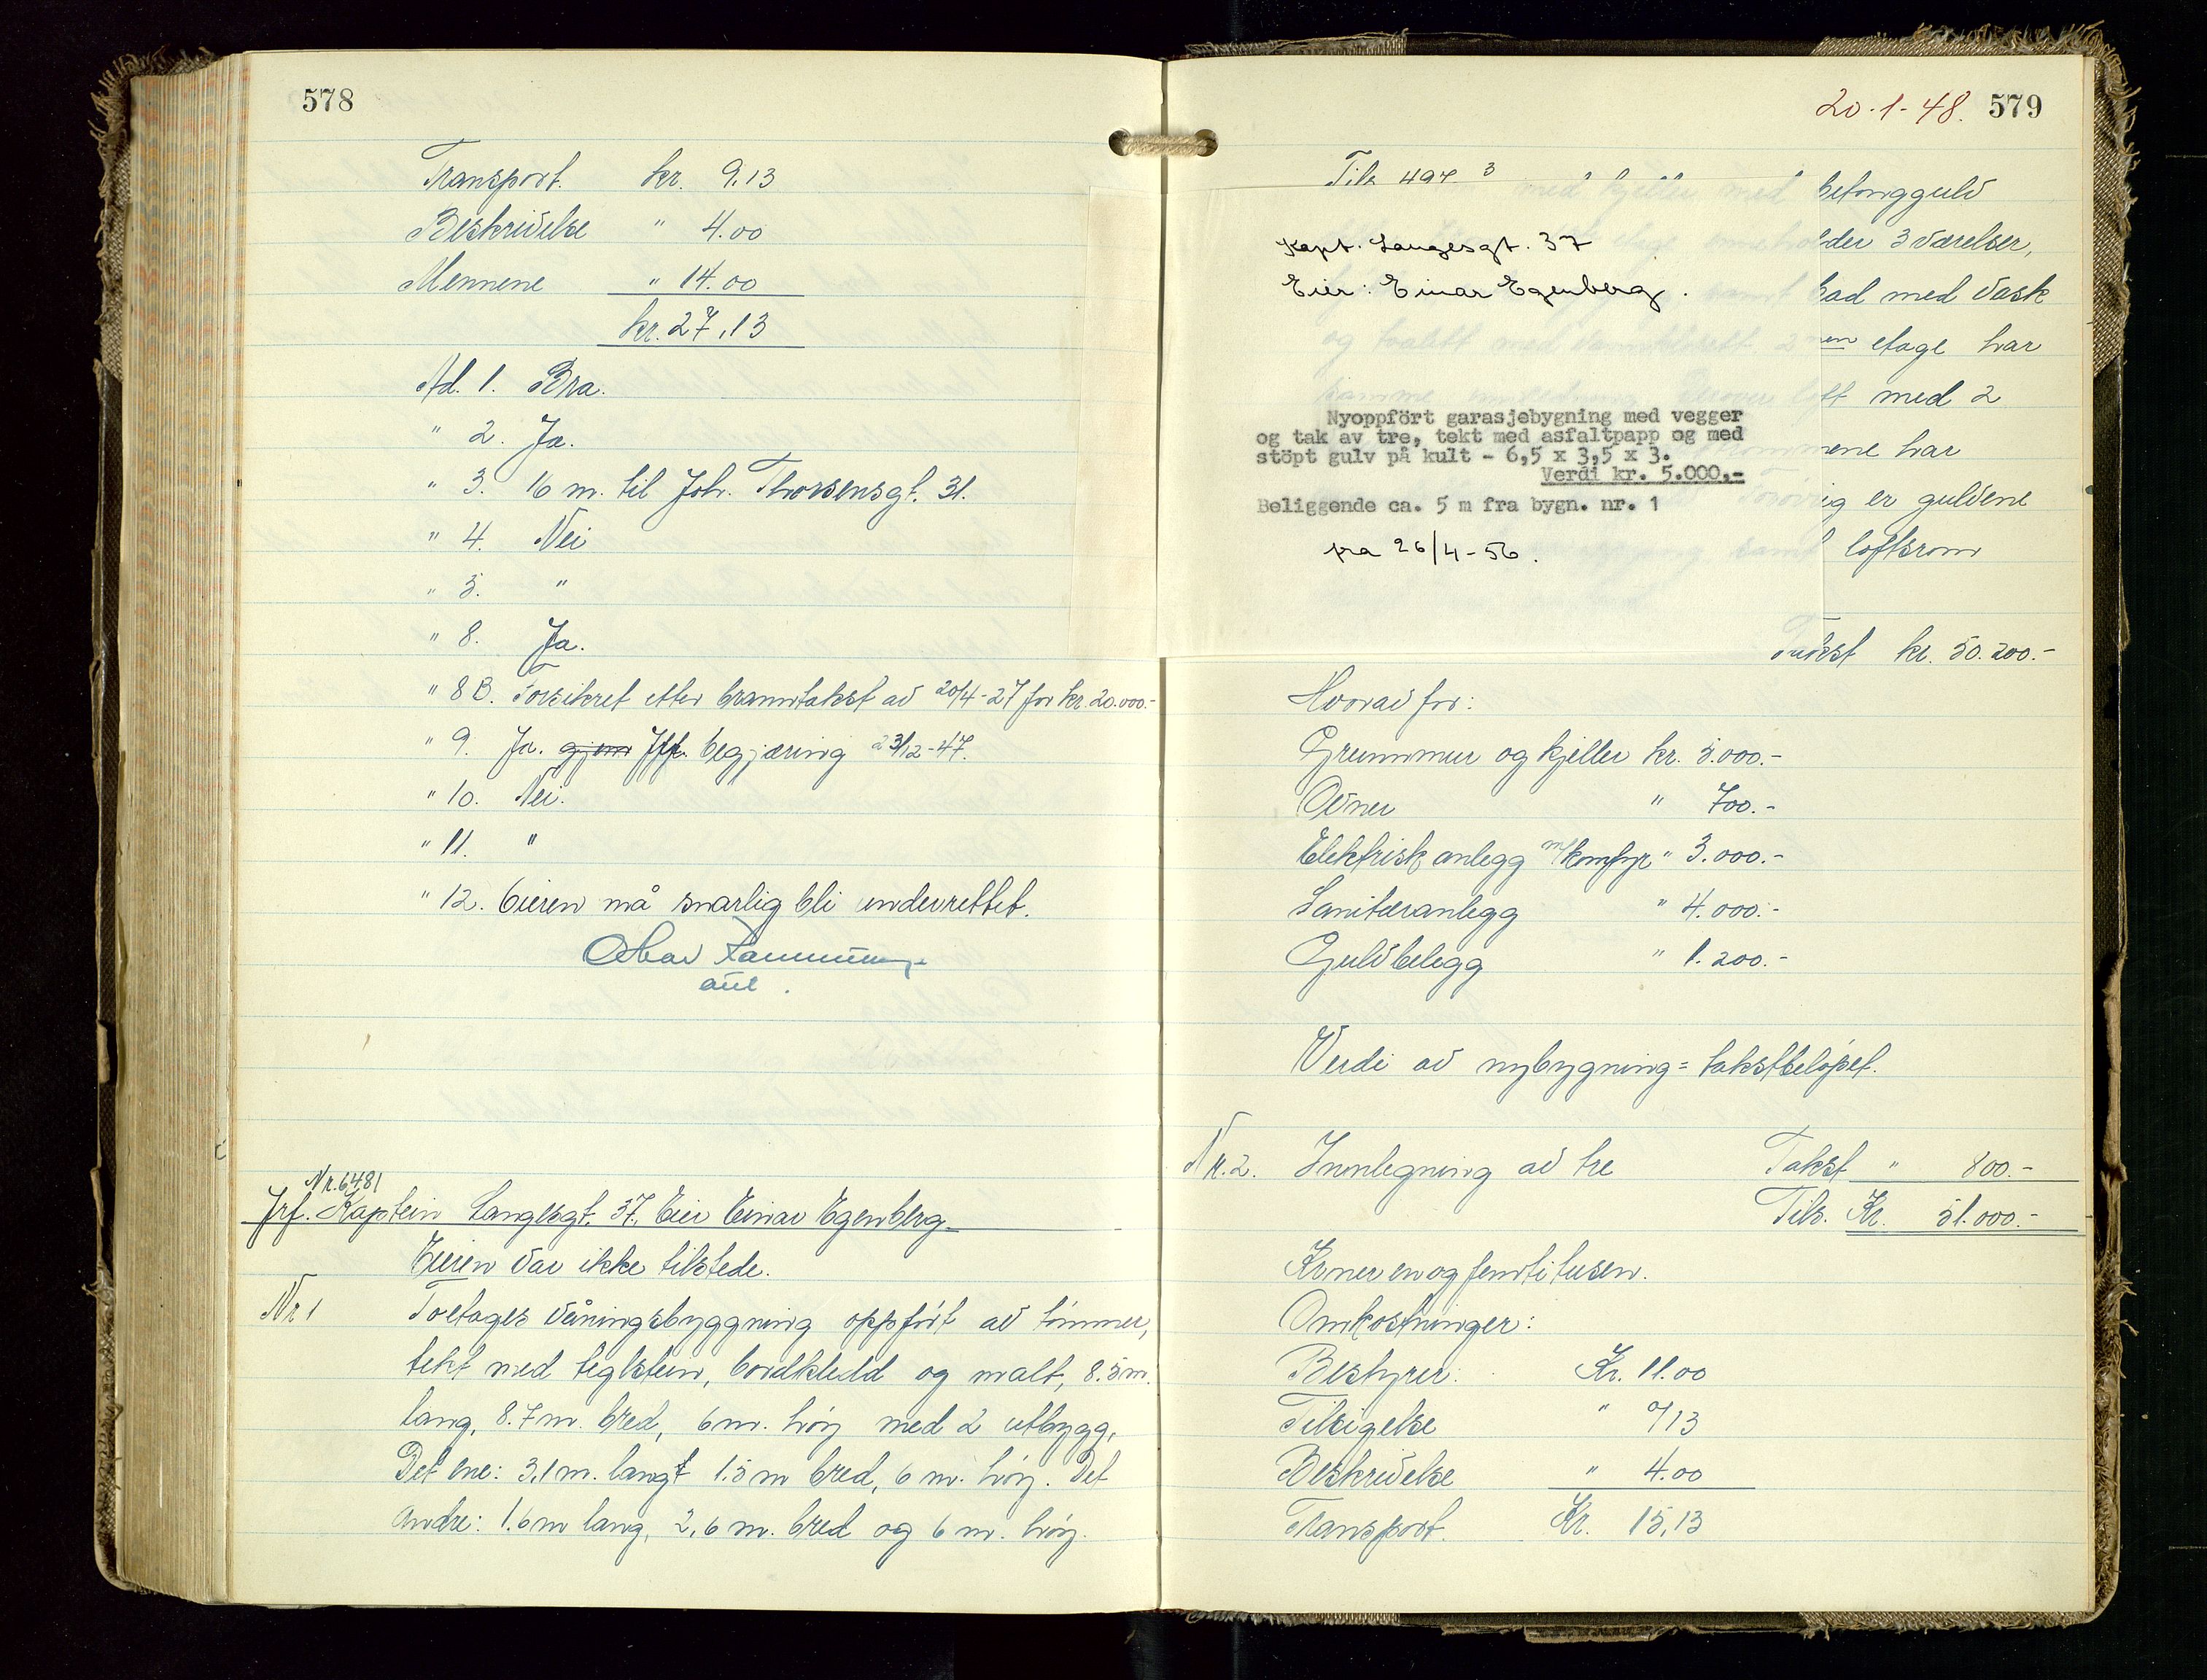 578
Transport. kr. 9.13
Beskrivelse " 4.00
Mennene " 14.00
kr. 27.13
Ad. 1. Bra.
" 2. Ja.
" 3. 16 m. til Joh. Thorsensgt. 31.
" 4. Nei
" 5. "
" 8. Ja.
" 8 B. Forsikret etter branntakst av 20/4-27 for kr. 20.000.-
" 9. Ja. begjæring 23/12-47.
" 10. Nei.
" 11. "
" 12. Eieren må snarlig bli underrettet.
Nr. 6481
Jrf. Kaptein Langesgt. 37. Eier Einar Egenberg.
Eieren var ikke tilstede.
Nr 1 Toetages våningsbyggning oppført av tømmer,
tekt med teglstein, bordkledd og malt, 8.5 m.
lang, 8.7 m. bred, 6 m. høy med 2 utbygg,
Det ene: 3,1 m. langt 1.5 m bred, 6 m. høy. Det
andre: 1.6 m lang, 2,6 m. bred og 6 m. høy.
20-1-48. 579
Tils 497 3 betonggulv
Kapt. Langesgt. 37 lder 3 værelser,
Eier: Einar Egenberg. bad med vask
og toalett med vannklosett 2 nen etage har
samme innredning. Derover loft med 2
Nyoppfört garasjebygning med vegger
og tak av tre, tekt med asfaltpapp og med
stöpt gulv på kult - 6,5 x 3,5 x 3. ene har
Verdi kr. 5.000,-
Beliggende ca. 5 m fra bygn. nr. 1 ig er gulvene
fra 26/4-56. loftsrom
Takst kr. 50.200.-
Hvorav for:
Grunnmur og kjeller kr. 5.000.-
Ovner " 700.-
Elektrisk anlegg m/komfyr " 3.000.-
Sanitæranlegg " 4.000.-
Gulvbelegg " 1.200.-
Verdi av nybygning = takstbeløpet.
Nr. 2. Innlegning av tre Takst " 800.-
Tils. Kr. 51.000.-
Kroner enogfemtitusen.
Omkostninger:
Bestyrer: Kr. 11.00
Tilsigelse " 0/13
Beskrivelse " 4.00
Transport. Kr. 15,13